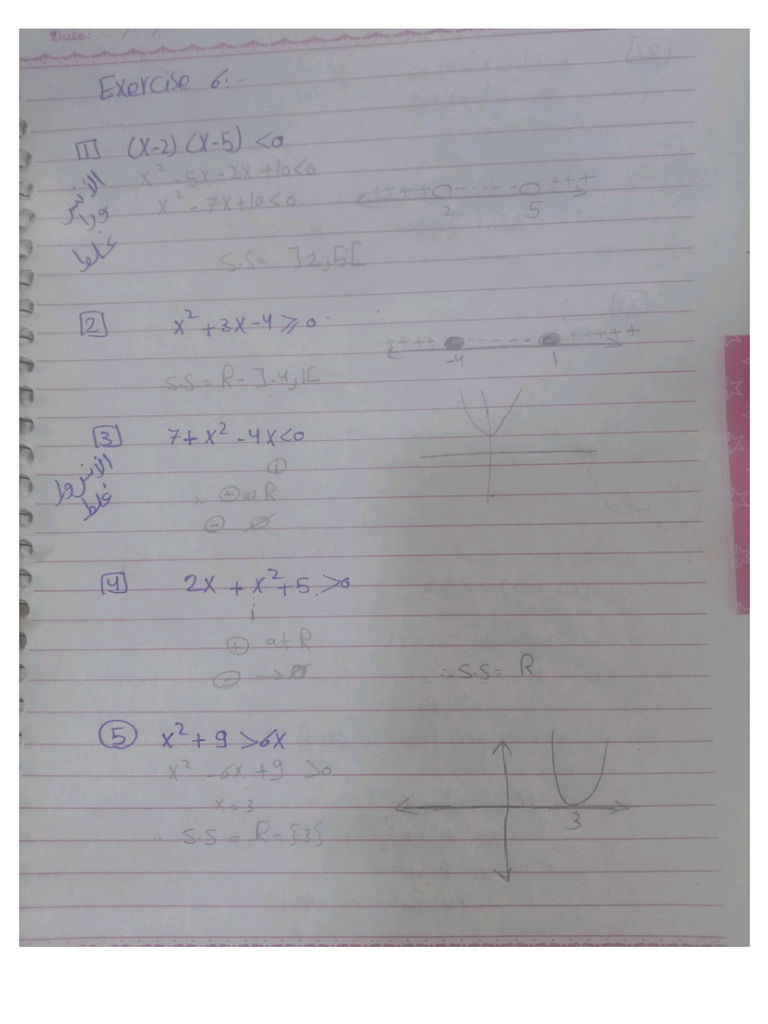 Date:
Exercise 6:-
1 (x-2) (x-5) <0
x² - 5x - 2x + 10 < 0
x² - 7x + 10 < 0
+ + + + - - - - - + + +
2 5
غلط
S.S = ]2,5[
2 x² + 3x - 4 ≥ 0
+ + + + - - - - - - + + + + +
-4 1
S.S = R - ]-4,1[
3 7 + x² - 4x < 0
+
غلط
∴ + at R
- ∅
4 2x + x² + 5 > 0
i
+ at R
- → ∅
∴ S.S = R
5 x² + 9 > 6x
x² - 6x + 9 > 0
x = 3
3
∴ S.S = R - {3}